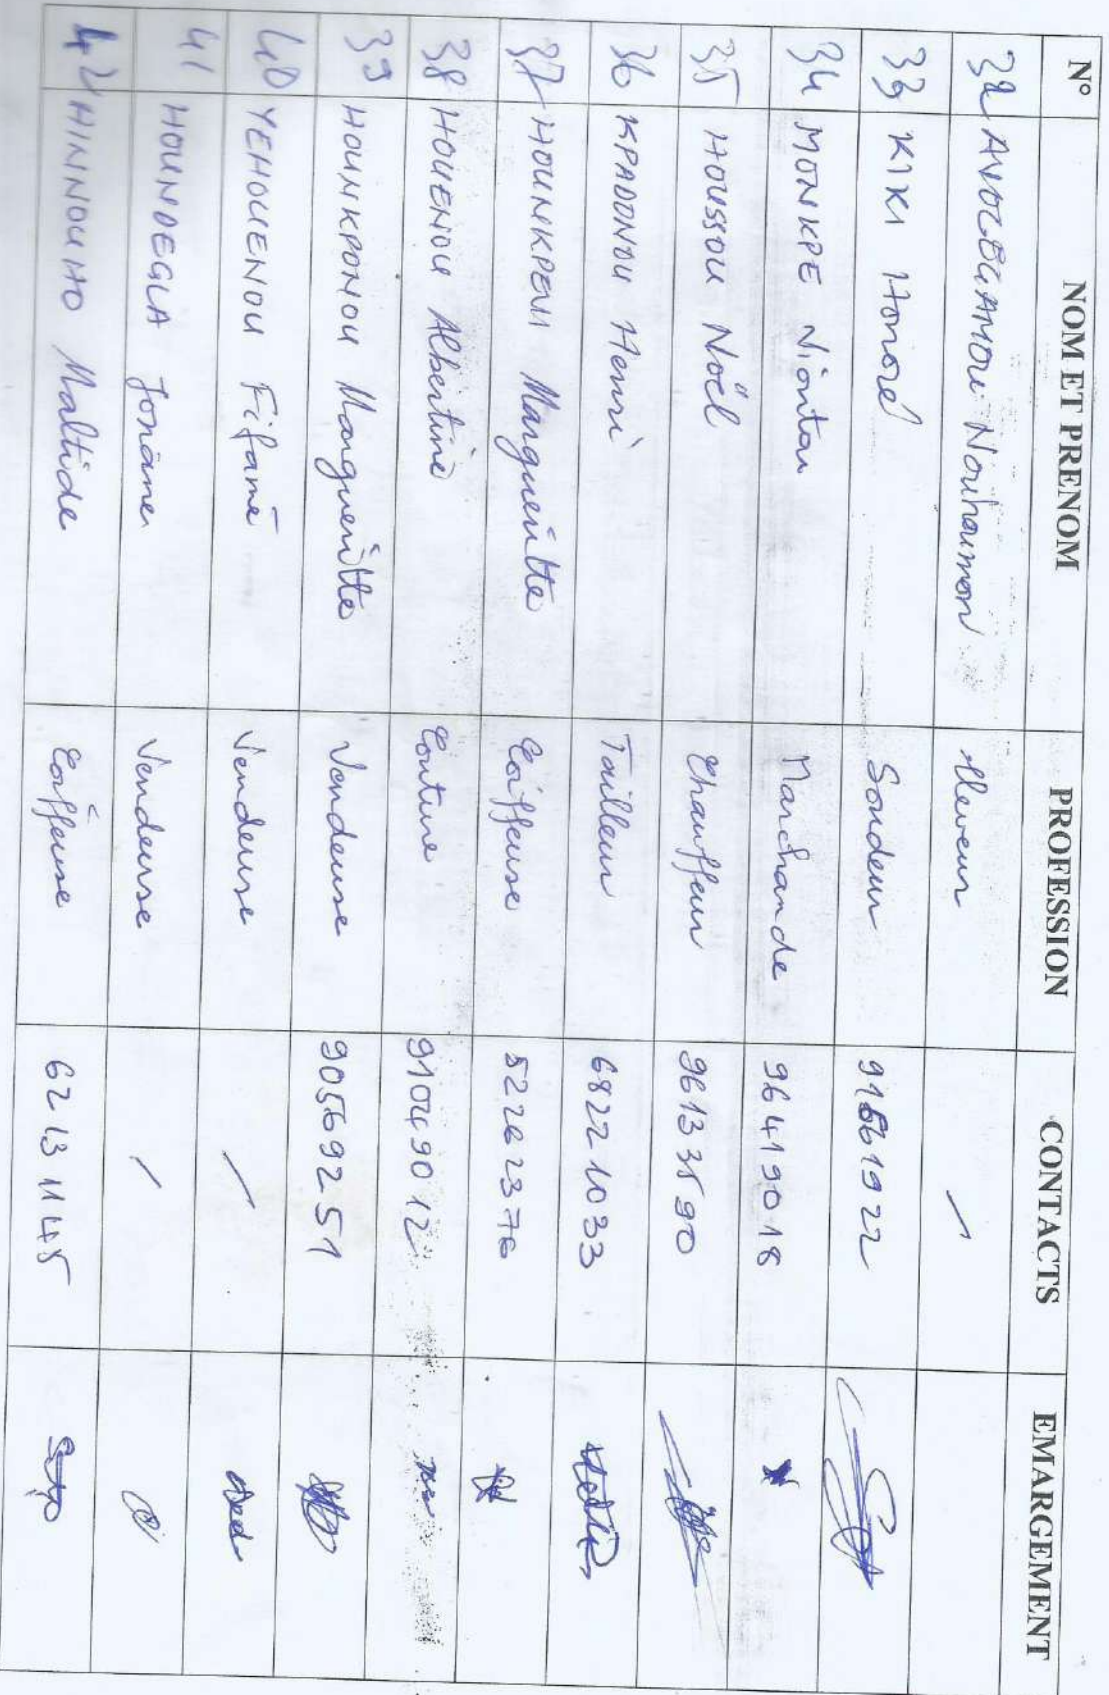 N° NOM ET PRENOM PROFESSION CONTACTS EMARGEMENT
32 Nouhoumon éleveur /
33 KIKI Honoré Soudeur 91661922
34 MONKPE Viontou Marchande 96419018
35 HOUSSOU Noël Chauffeur 96133590
36 KPADONOU Henri Tailleur 68221033
37 HOUNKPEVI Margueritte Coiffeuse 52262376
38 HOUENOU Albertine Couture 91049012
39 HOUNKPONOU Margueritte Vendeuse 90569251
40 YEHOUENOU Fifamè Vendeuse /
41 HOUNDEGLA Vendeuse /
42 HINNOUHO Maltide Coiffeuse 62131145